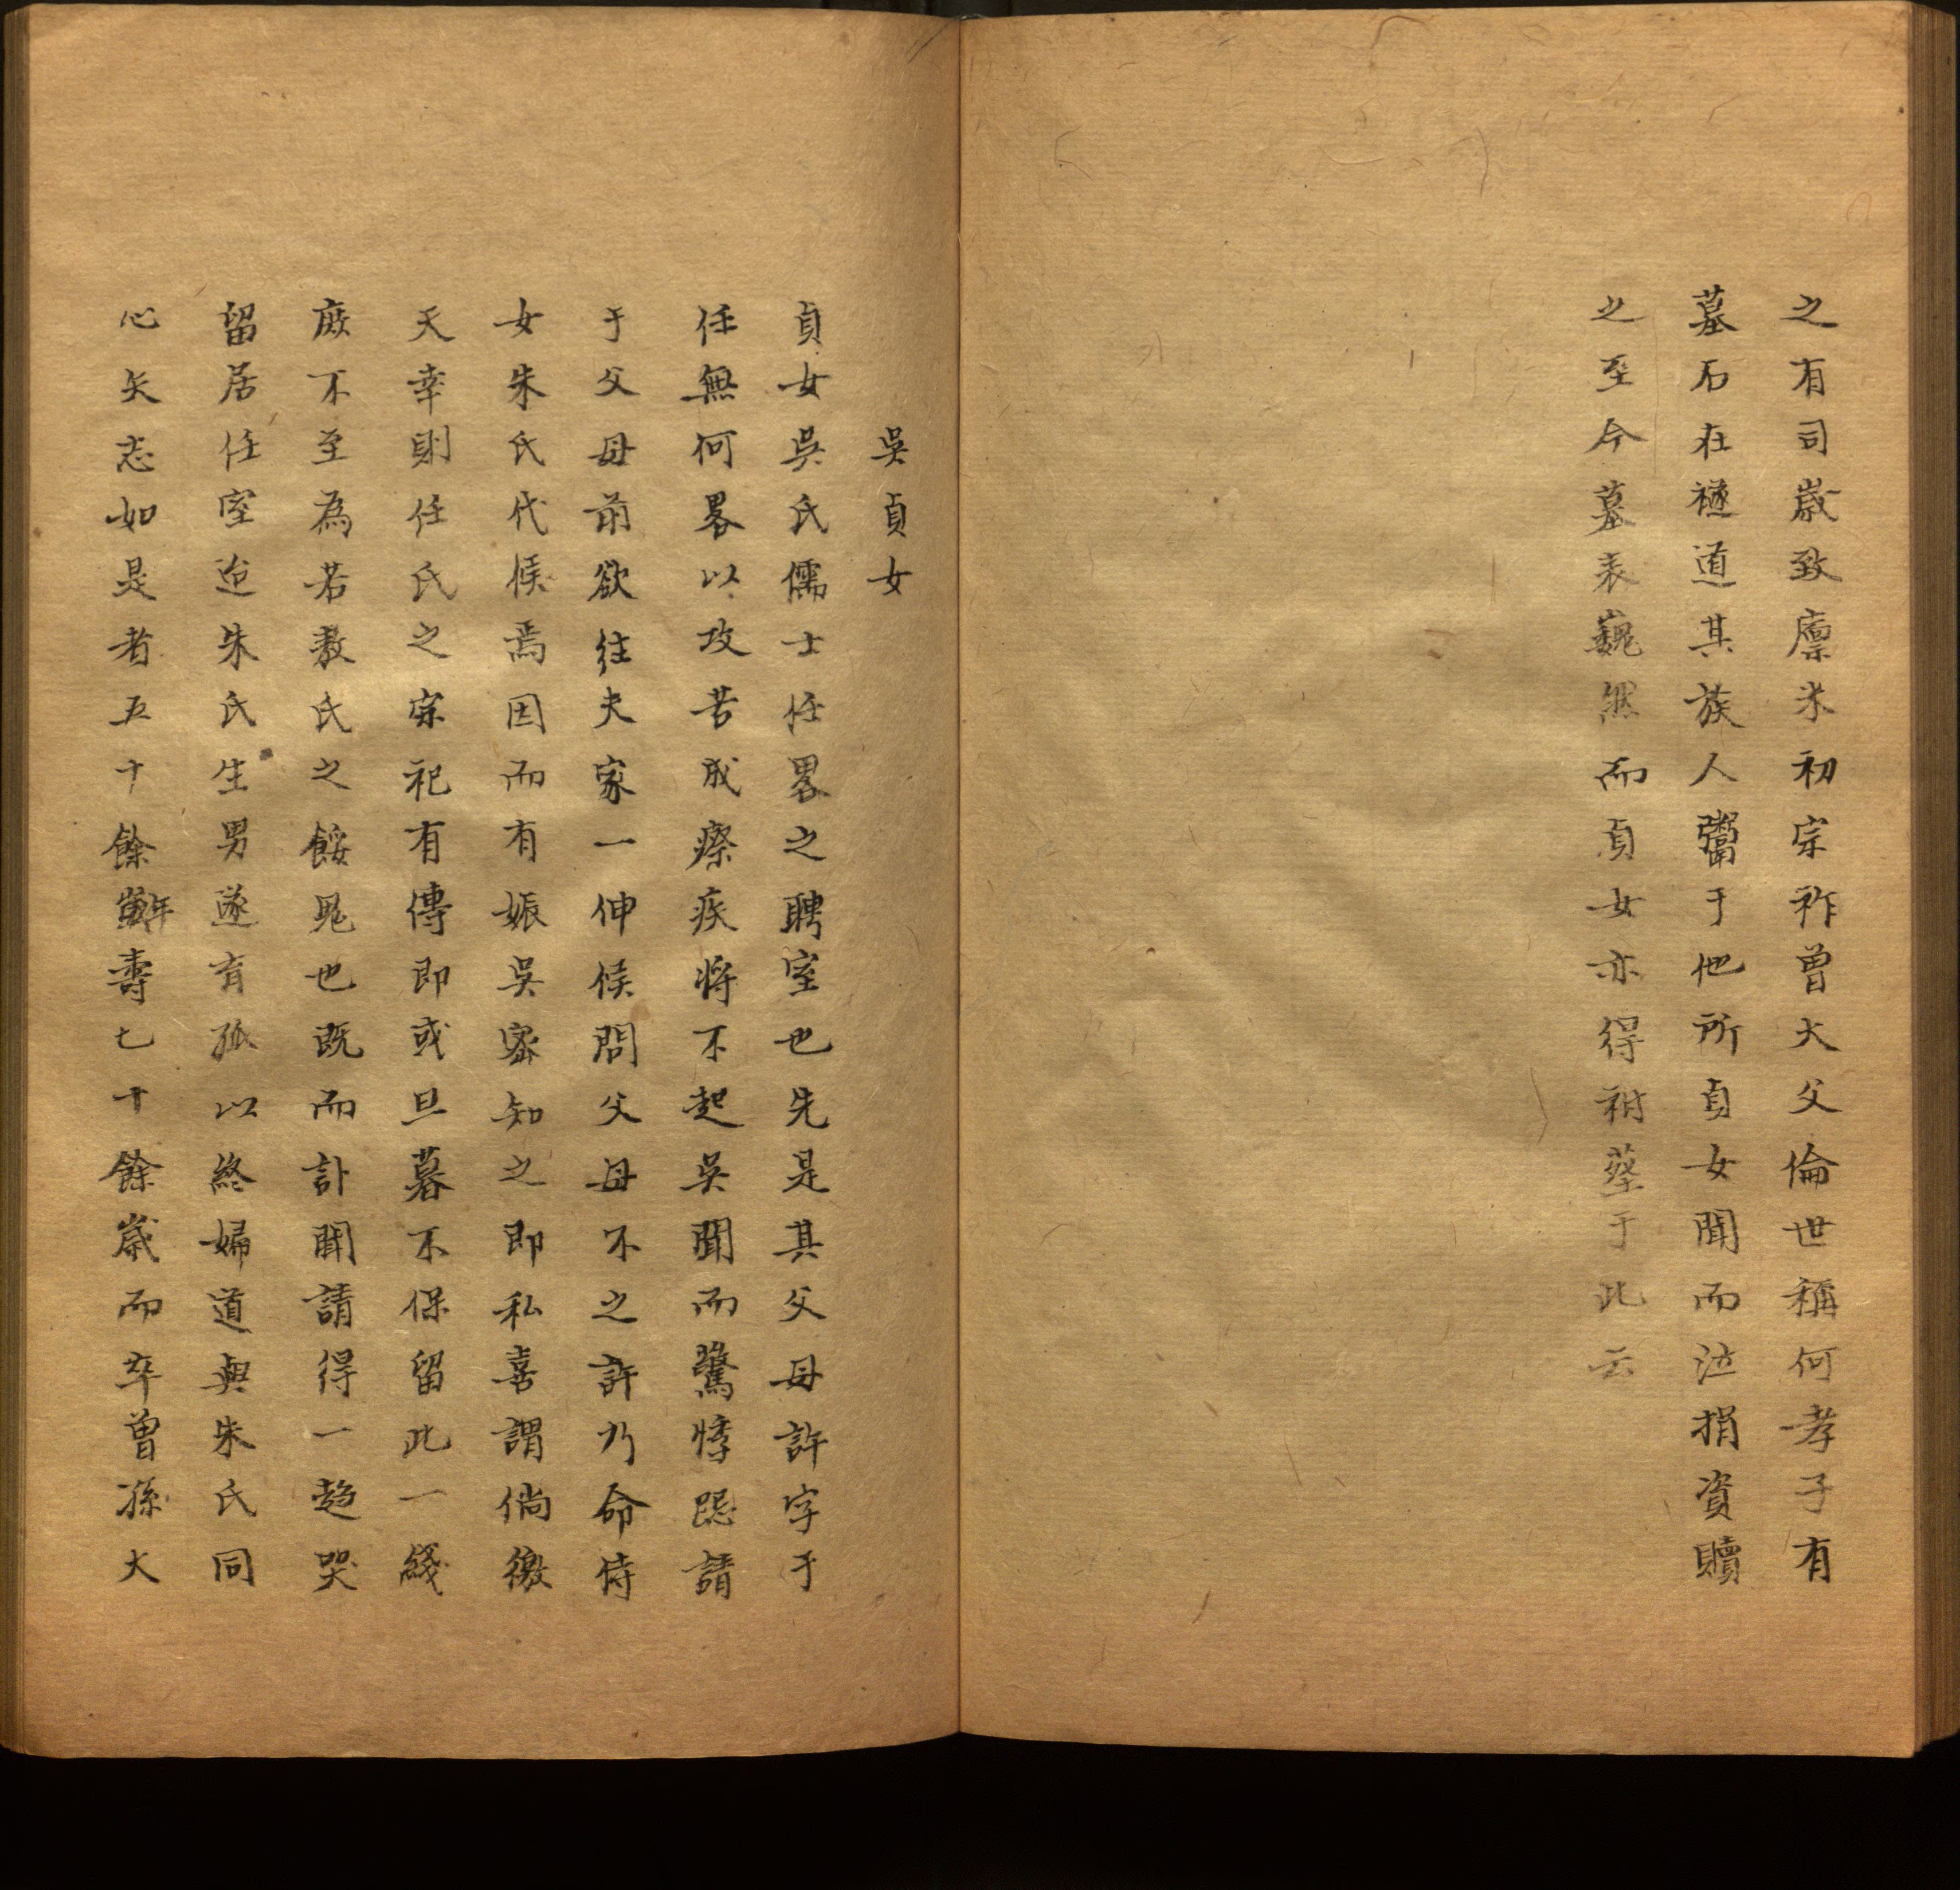 之有司歲致廩米初宗祚曾大父倫世稱何孝子有
墓石在禭道其族人鬻于他所貞女聞而泣捐資贖
之至今墓表巍然而貞女亦得祔塟于此云
吳貞女
貞女吳氏儒士任畧之聘室也先是其父母許字于
任無何畧以攻苦成瘵疾將不起吳聞而驚悸跽請
于父母前欲往夫家一伸候問父母不之許乃命侍
女朱氏代候焉因而有娠吳密知之即私喜謂倘徼
天幸則任氏之宗祀有傳即或旦暮不保留此一綫
庶不至為若敖氏之餒鬼也既而訃聞請得一趋哭
留居任室迨朱氏生男遂育孤以終婦道與朱氏同
心矢志如是者五十餘年壽七十餘歲而卒曾孫大